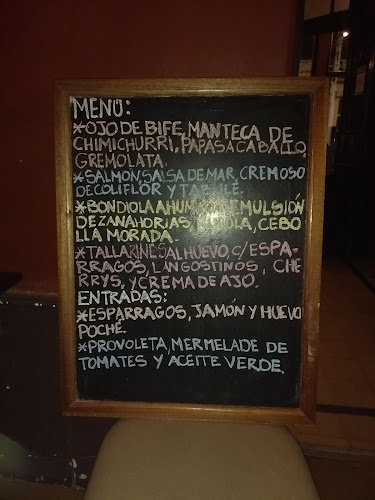 MENÚ:
*OJO DE BIFE, MANTECA DE
CHIMICHURRI, PAPAS A CABALLO,
GREMOLATA.
*SALMÓN, SALSA DE MAR, CREMOSO
DE COLIFLOR Y TABULÉ.
*BONDIOLA EMULSIÓN
DE ZANAHORIAS, CEBO
LLA MORADA.
*TALLARINES AL HUEVO, C/ESPA-
RRAGOS, LANGOSTINOS, CHE
RRYS, Y CREMA DE AJO.
ENTRADAS:
*ESPARRAGOS, JAMÓN Y HUEVO
POCHÉ.
*PROVOLETA, MERMELADE DE
TOMATES Y ACEITE VERDE.